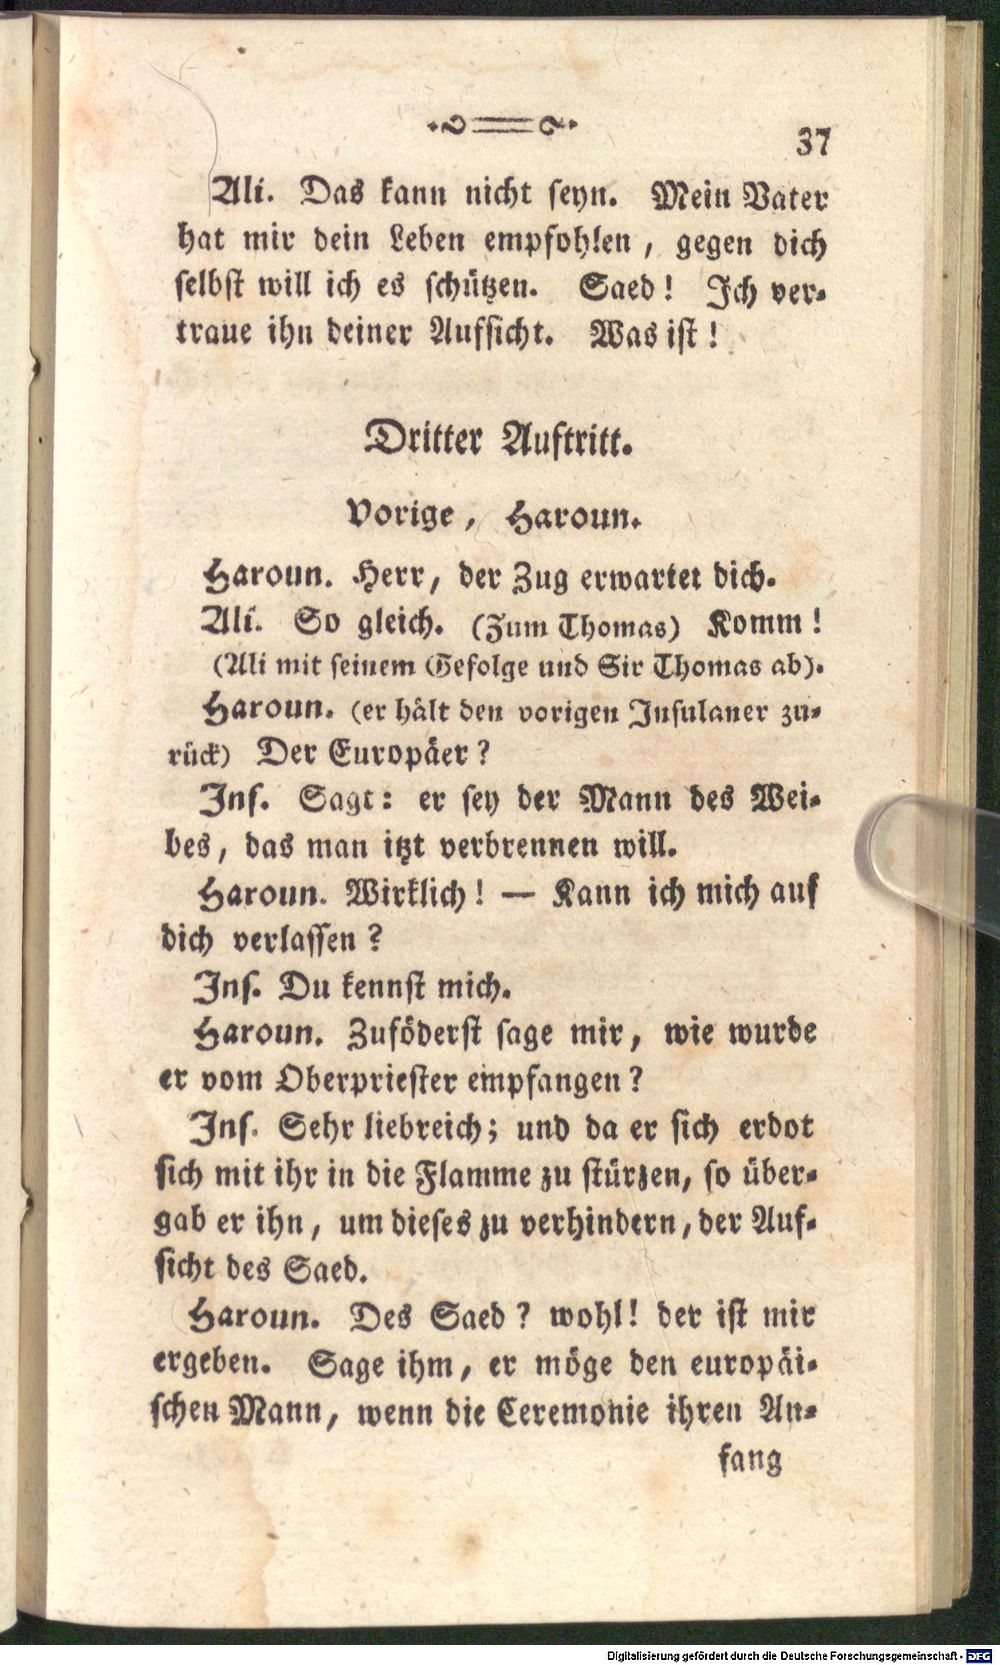 37
Ali. Das kann nicht seyn. Mein Vater
hat mir dein Leben empfohlen, gegen dich
selbst will ich es schützen. Saed! Ich ver-
traue ihn deiner Aufsicht. Was ist!
Dritter Auftritt.
Vorige, Haroun.
Haroun. Herr, der Zug erwartet dich.
Ali. So gleich. (Zum Thomas) Komm!
(Ali mit seinem Gefolge und Sir Thomas ab).
Haroun. (er hält den vorigen Insulaner zu-
rück) Der Europäer?
Ins. Sagt: er sey der Mann des Wei-
bes, das man itzt verbrennen will.
Haroun. Wirklich! — Kann ich mich auf
dich verlassen?
Ins. Du kennst mich.
Haroun. Zuföderst sage mir, wie wurde
er vom Oberpriester empfangen?
Ins. Sehr liebreich; und da er sich erbot
sich mit ihr in die Flamme zu stürzen, so über-
gab er ihn, um dieses zu verhindern, der Auf-
sicht des Saed.
Haroun. Des Saed? wohl! der ist mir
ergeben. Sage ihm, er möge den europäi-
schen Mann, wenn die Ceremonie ihren An-
fang
Digitalisierung gefördert durch die Deutsche Forschungsgemeinschaft - DFG